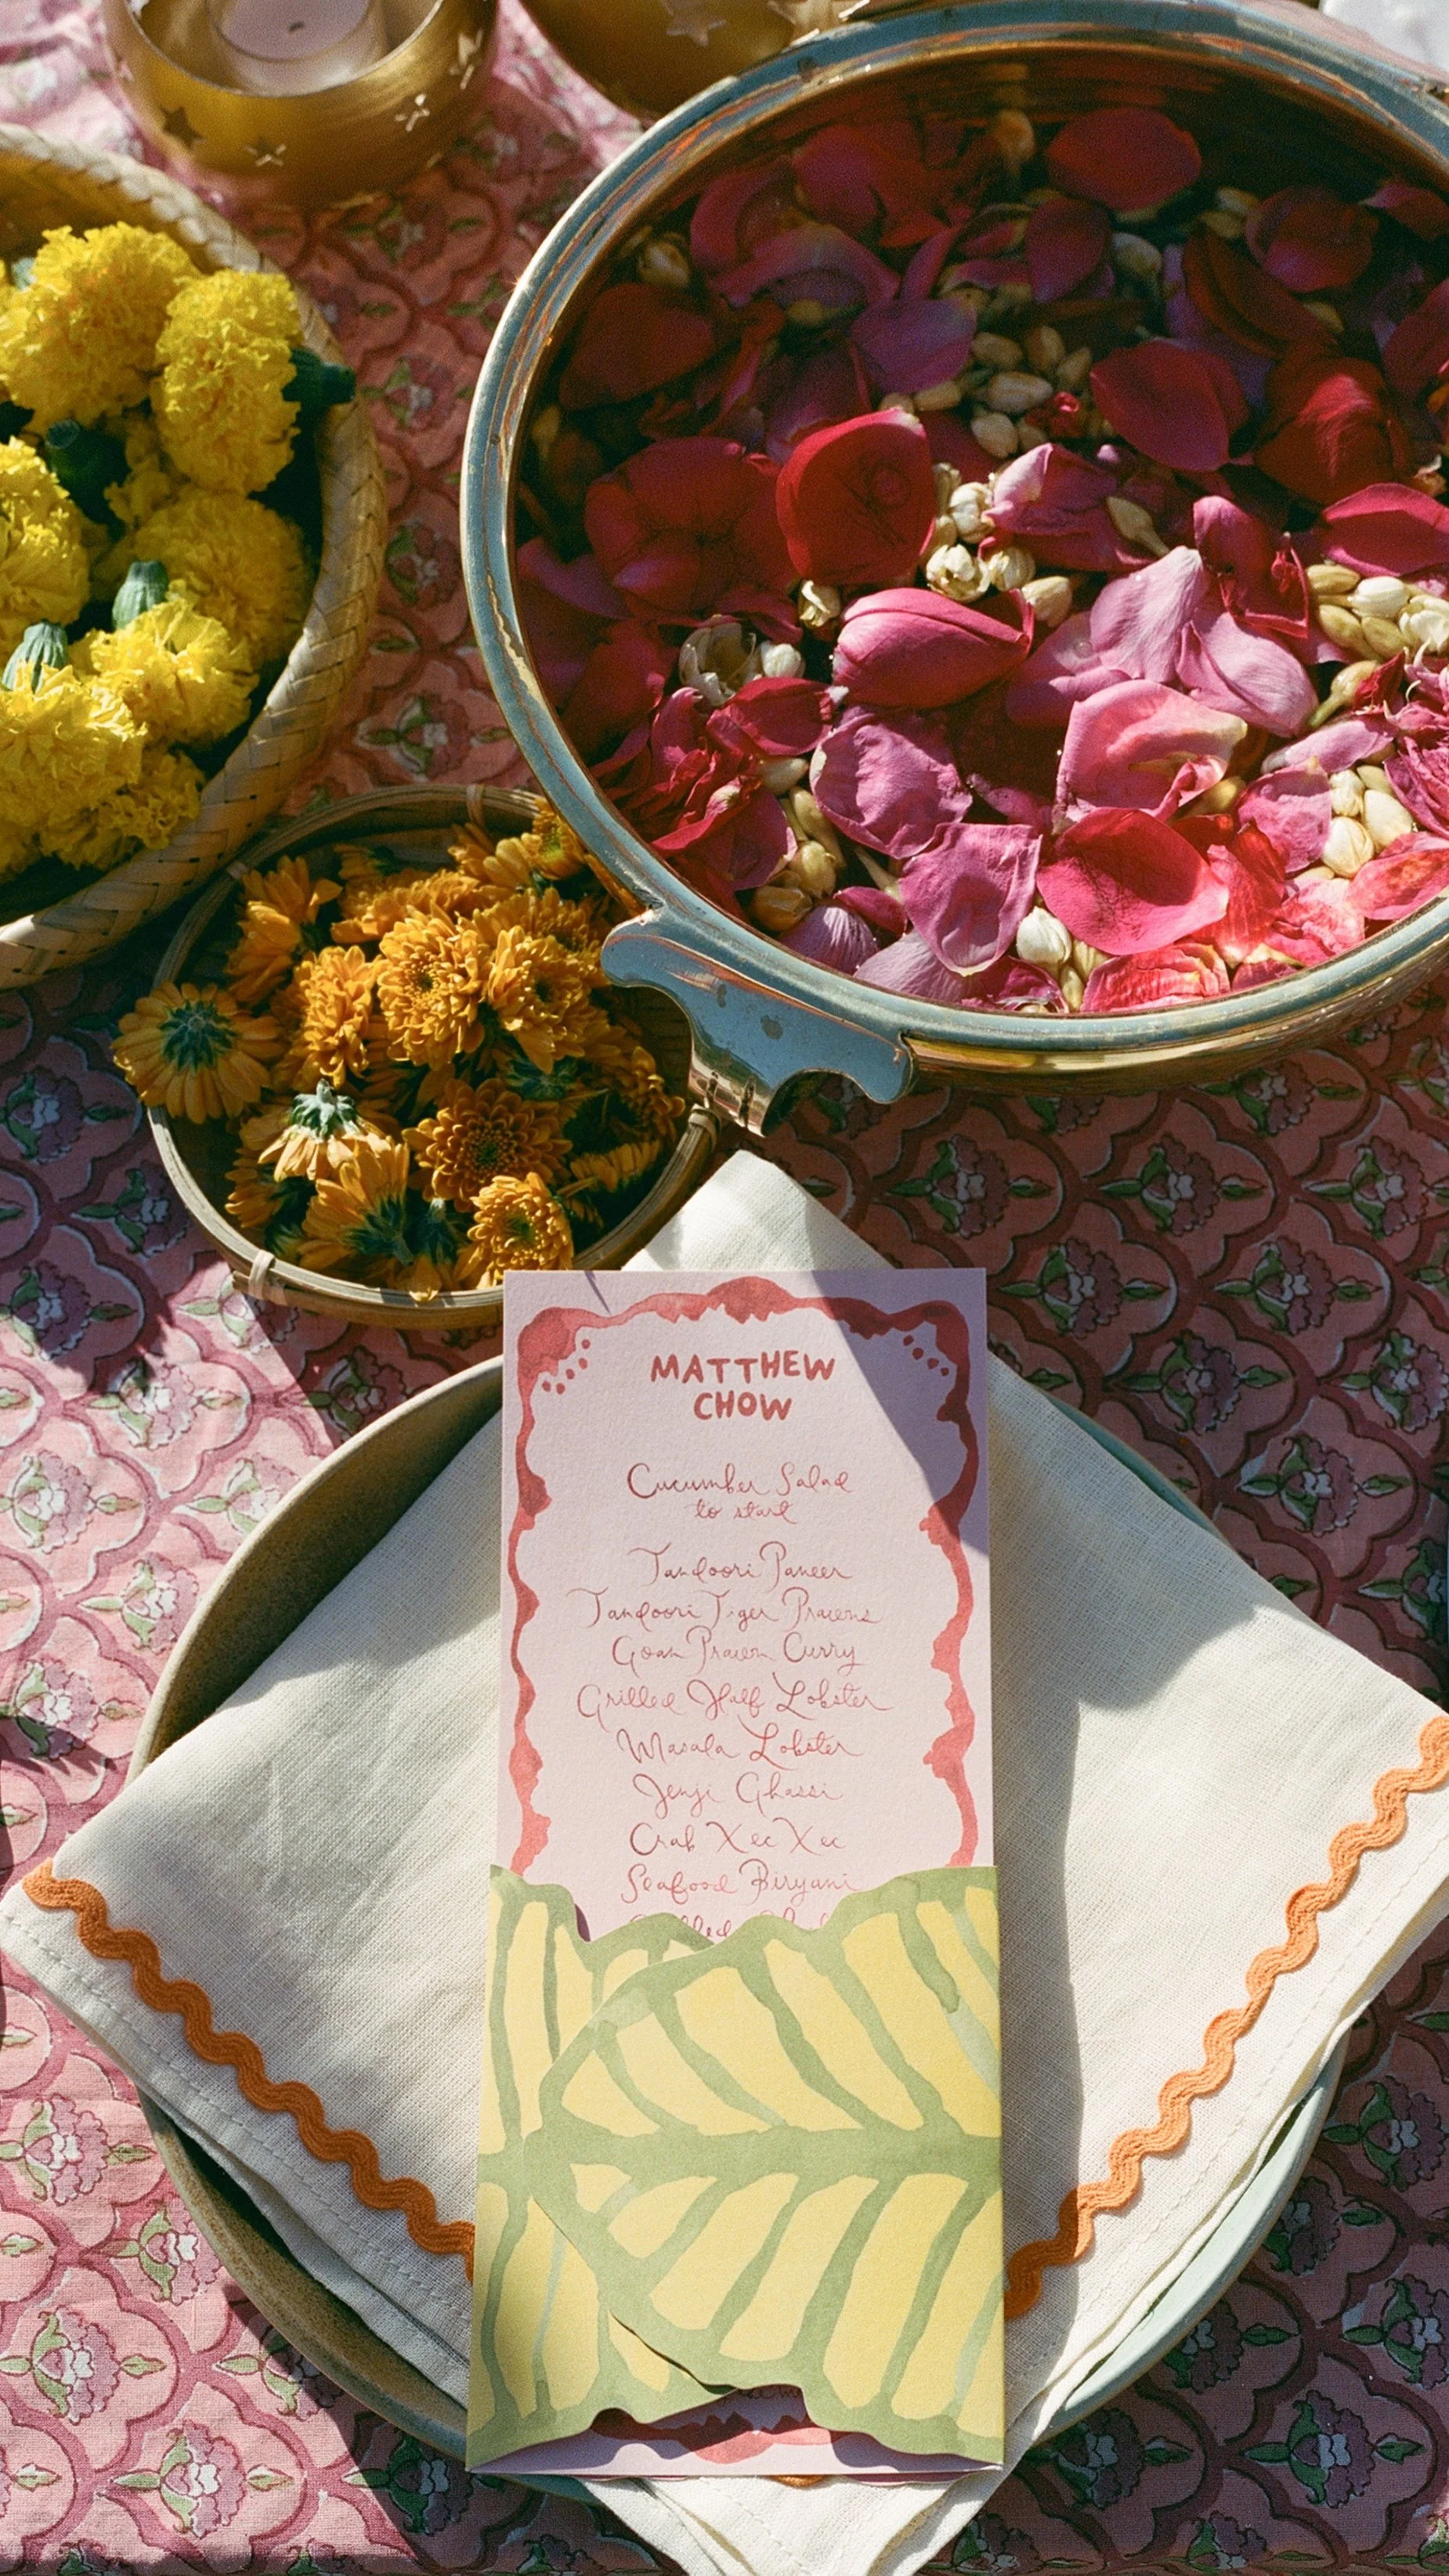 MATTHEW
CHOW
Cucumber Salad
to start
Tandoori Paneer
Tandoori Tiger Prawns
Goan Prawn Curry
Grilled Half Lobster
Masala Lobster
Jenji Ghassi
Crab Xec Xec
Seafood Biryani